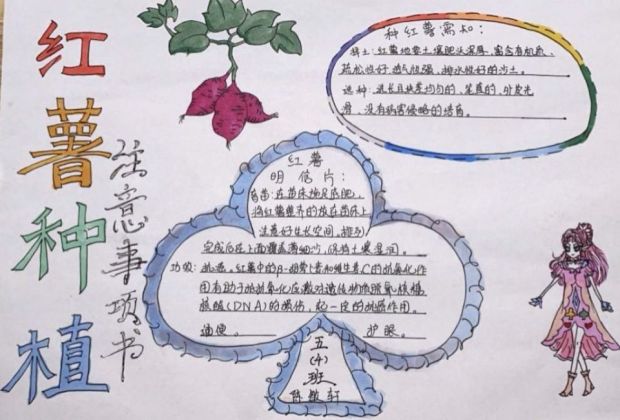 红薯种植
注意事项书
种红薯需知:
择土:红薯地要土层肥沃深厚、富含有机质、
疏松性好、透气性强、排水性好的沙土。
选种:选长且块茎均匀的、笔直的、外皮光
滑、没有病害侵略的培育。
红薯
明信片:
育苗:在苗床施足底肥,
将红薯整齐的放在苗床上
注意好生长空间,排列
完成后在上面覆盖薄细沙,保持土壤湿润。
功效:抗癌。红薯中的β-胡萝卜素和维生素C的抗氧化作
用有助于抵抗氧化应激对遗传物质脱氧核糖
核酸(DNA)的损伤,起一定的抗癌作用。
通便。 护眼。
五
(4)
班
陈敏轩